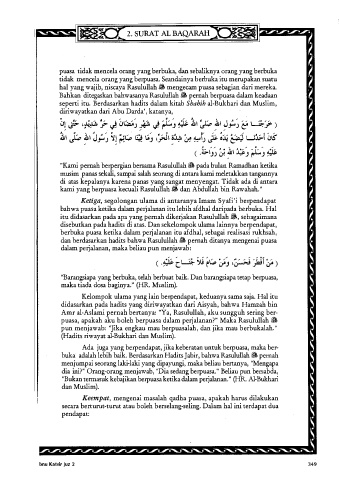 2. SURAT AL BAQARAH
puasa tidak mencela orang yang berbuka, dan sebaliknya orang yang berbuka
tidak mencela orang yang berpuasa. Seandainya berbuka itu merupakan suatu
hal yang wajib, niscaya Rasulullah ﷺ mengecam puasa sebagian dari mereka.
Bahkan ditegaskan bahwasanya Rasulullah ﷺ pernah berpuasa dalam keadaan
seperti itu. Berdasarkan hadits dalam kitab Shahih al-Bukhari dan Muslim,
diriwayatkan dari Abu Darda', katanya,
( خَرَجْنَا مَعَ رَسُولِ اللهِ صَلَّى اللهُ عَلَيْهِ وَسَلَّمَ فِي شَهْرِ رَمَضَانَ فِي حَرٍّ شَدِيْدٍ، حَتَّى إِنْ
كَانَ أَحَدُنَا لَيَضَعُ يَدَهُ عَلَى رَأْسِهِ مِنْ شِدَّةِ الْحَرِّ، وَمَا فِيْنَا صَائِمٌ إِلاَّ رَسُولُ اللهِ صَلَّى اللهُ
عَلَيْهِ وَسَلَّمَ وَعَبْدُ اللهِ بْنُ رَوَاحَةَ. )
"Kami pernah bepergian bersama Rasulullah ﷺ pada bulan Ramadhan ketika
musim panas sekali, sampai salah seorang di antara kami meletakkan tangannya
di atas kepalanya karena panas yang sangat menyengat. Tidak ada di antara
kami yang berpuasa kecuali Rasulullah ﷺ dan Abdullah bin Rawahah."
Ketiga, segolongan ulama di antaranya Imam Syafi'i berpendapat
bahwa puasa ketika dalam perjalanan itu lebih afdhal daripada berbuka. Hal
itu didasarkan pada apa yang pernah dikerjakan Rasulullah ﷺ, sebagaimana
disebutkan pada hadits di atas. Dan sekelompok ulama lainnya berpendapat,
berbuka puasa ketika dalam perjalanan itu afdhal, sebagai realisasi rukhsah,
dan berdasarkan hadits bahwa Rasulullah ﷺ pernah ditanya mengenai puasa
dalam perjalanan, maka beliau pun menjawab:
( مَنْ أَفْطَرَ فَحَسَنٌ، وَمَنْ صَامَ فَلاَ جُنَاحَ عَلَيْهِ. )
"Barangsiapa yang berbuka, telah berbuat baik. Dan barangsiapa tetap berpuasa,
maka tiada dosa baginya." (HR. Muslim).
Kelompok ulama yang lain berpendapat, keduanya sama saja. Hal itu
didasarkan pada hadits yang diriwayatkan dari Aisyah, bahwa Hamzah bin
Amr al-Aslami pernah bertanya: "Ya, Rasulullah, aku sungguh sering ber-
puasa, apakah aku boleh berpuasa dalam perjalanan?" Maka Rasulullah ﷺ
pun menjawab: "Jika engkau mau berpuasalah, dan jika mau berbukalah."
(Hadits riwayat al-Bukhari dan Muslim).
Ada juga yang berpendapat, jika keberatan untuk berpuasa, maka ber-
buka adalah lebih baik. Berdasarkan Hadits Jabir, bahwa Rasulullah ﷺ pernah
menjumpai seorang laki-laki yang dipayungi, maka beliau bertanya, "Mengapa
dia ini?" Orang-orang menjawab, "Dia sedang berpuasa." Beliau pun bersabda,
"Bukan termasuk kebajikan berpuasa ketika dalam perjalanan." (HR. Al-Bukhari
dan Muslim).
Keempat, mengenai masalah qadha puasa, apakah harus dilakukan
secara berturut-turut atau boleh berselang-seling. Dalam hal ini terdapat dua
pendapat:
Ibnu Katsir juz 2
349